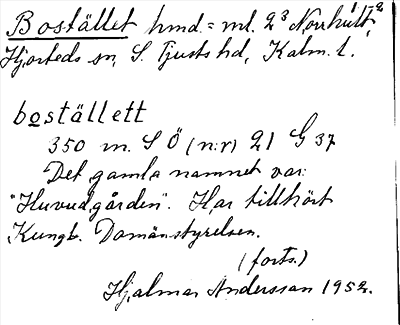 Bostället hmd. = ml. 2³ Norrhult 1,2
Hjorteds sn, S. Tjusts hd, Kalm. l.
boställett
350 m. S Ö (n:r) 21 G 37
Det gamla namnet var:
"Huvudgården". Har tillhört
Kungl. Domänstyrelsen.
(forts.)
Hjalmar Andersson 1952.